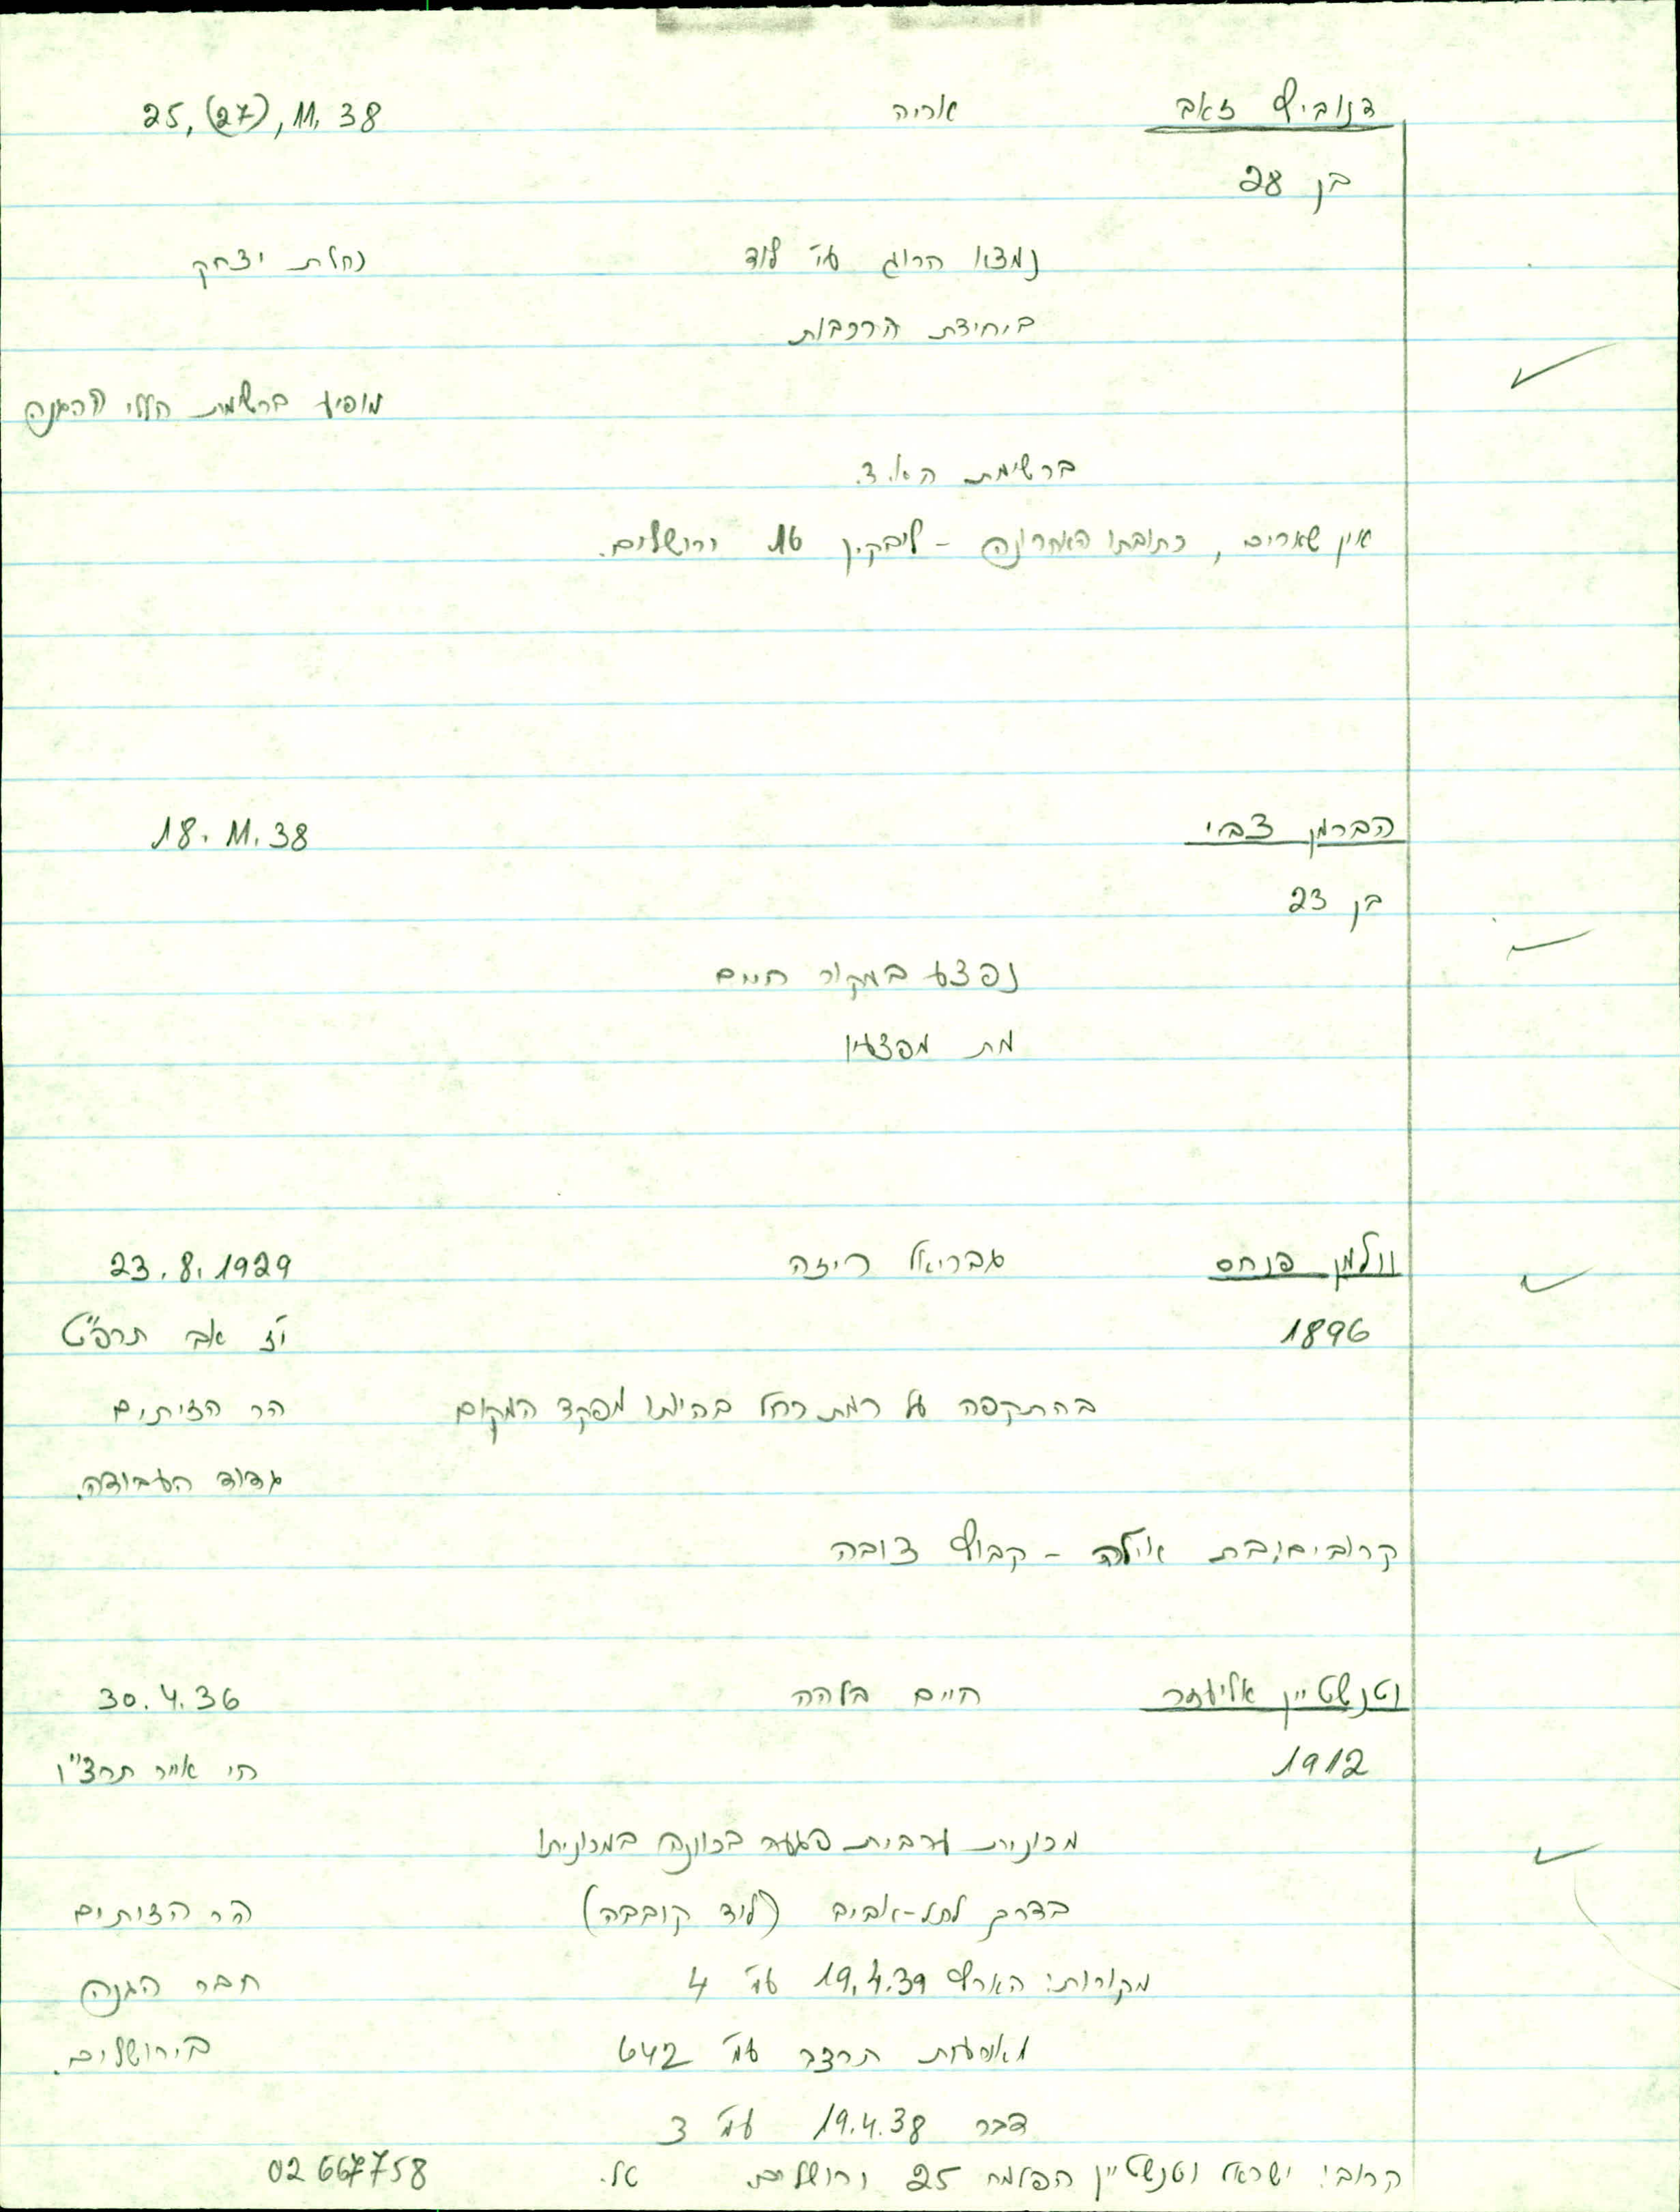 דנוביץ זאב אריה 25, (27), 11. 38
בן 28
נמצא הרוג ע"י לוד נחלת יצחק
ביחידת הרכבות
מופיע ברשימת חללי ההגנה
ברשימת הא.צ.
אין שארים, כתובתו האחרונה - ליבקין 16 ירושלים.
הברמן צבי 18. 11. 38
בן 23
נפצע במקור חיים
מת מפצעיו
וולמן פנחס גבריאל ריזה 23. 8. 1929
1896 י"ז אב תרפ"ט
בהתקפה על רמת רחל בהיותו מפקד המקום הר הזיתים
גדוד העבודה.
קרובים: בת אילה - קבוץ צובה
וטנשטיין אליעזר חיים בלהה 30. 4. 36
1912 ח' אייר תרצ"ו
מכונית ערבית פגעה בכוונה במכוניתו
בדרך לתל-אביב (ליד קובבה) הר הזיתים
מקורות: הארץ 19.4.39 עמ' 4 חבר הגנה
מאורעות תרצו עמ' 642 בירושלים.
דבר 19.4.38 עמ' 3
קרוב: ישראל וטנשטיין הפלמח 25 ירושלים טל. 02 667758